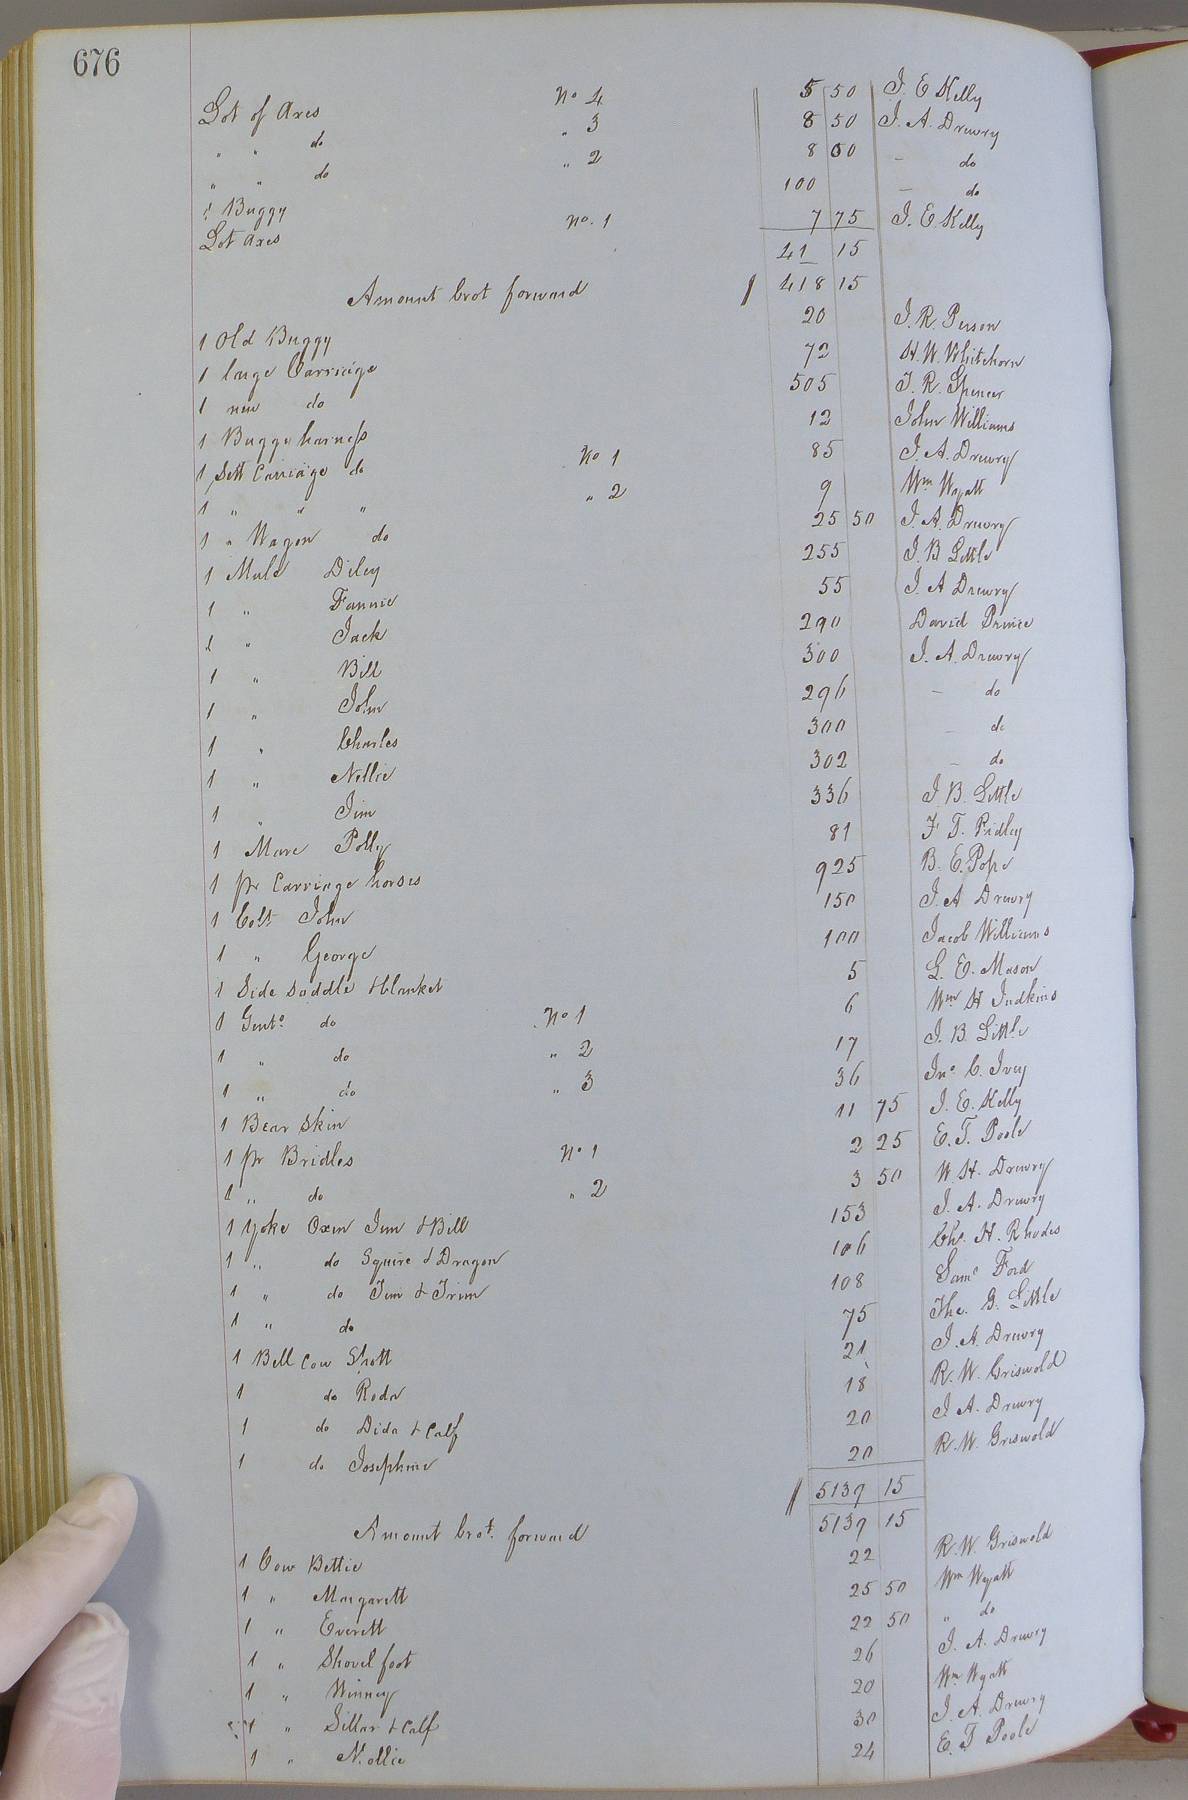 676
Lot of Axes No 4 5 50 J. E Kelly
" " do " 3 8 50 J. A. Drewry
" " do " 2 8 00 – do
1 Buggy 100 – do
Lot Axes No. 1 7 75 J. E. Kelly
41 15
Amount brot forward 418 15
1 Old Buggy 20 J. R. Person
1 large Carriage 72 H. W. Whitehorn
1 new do 505 J. R. Spencer
1 Buggy harness 12 John Williams
1 Sett Carriage do No 1 85 J. A. Drewry
1 " " " " 2 9 Wm Wyatt
1 " Wagon do 25 50 J. A. Drewry
1 Mule Diley 255 J. B Little
1 " Fannie 55 J. A Drewry
1 " Jack 290 David Prince
1 " Bill 300 J. A. Drewry
1 " John 296 – do
1 " Charles 300 – do
1 " Nellie 302 – do
1 " Jim 336 J. B. Little
1 Mare Polly 81 F. T. Ridley
1 pr Carriage horses 925 B. E. Pope
1 Colt John 150 J. A Drewry
1 " George 100 Jacob Williams
1 Side Saddle & blanket 5 L. E. Mason
1 Gents do No 1 6 Wm H Judkins
1 " do " 2 17 J. B. Little
1 " do " 3 36 Jno C. Ivey
1 Bear Skin 11 75 J. E. Kelly
1 pr Bridles No 1 2 25 E. T. Poole
1 " do " 2 3 50 W. H. Drewry
1 yoke Oxen Jim & Bill 153 J. A. Drewry
1 " do Squire & Dragon 106 Chs. H. Rhodes
1 " do Tim & Trim 108 Saml Ford
1 " do 75 Tho. G. Little
1 Bell Cow Shott 21 J. A. Drewry
1 do Roda 18 R. W. Griswold
1 do Dida & Calf 20 J. A. Drewry
1 do Josephine 20 R. W. Griswold
5139 15
Amount brot. forward 5139 15
1 Cow Bettie 22 R. W. Griswold
1 " Margarett 25 50 Wm Wyatt
1 " Everett 22 50 " do
1 " Shovel foot 26 J. A. Drewry
1 " Winney 20 Wm Wyatt
1 " Sillar & Calf 30 J. A. Drewry
1 " Nollie 24 E. T Poole